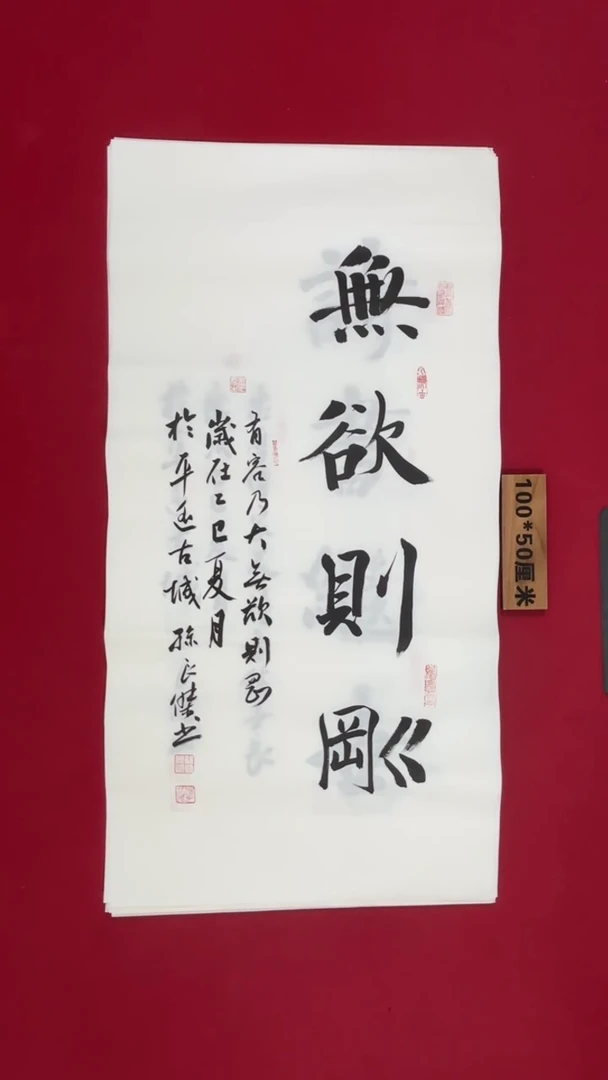 無欲則剛
有容乃大無欲則剛
歲在乙巳夏月
於平遥古城孫良傑书
100*50厘米